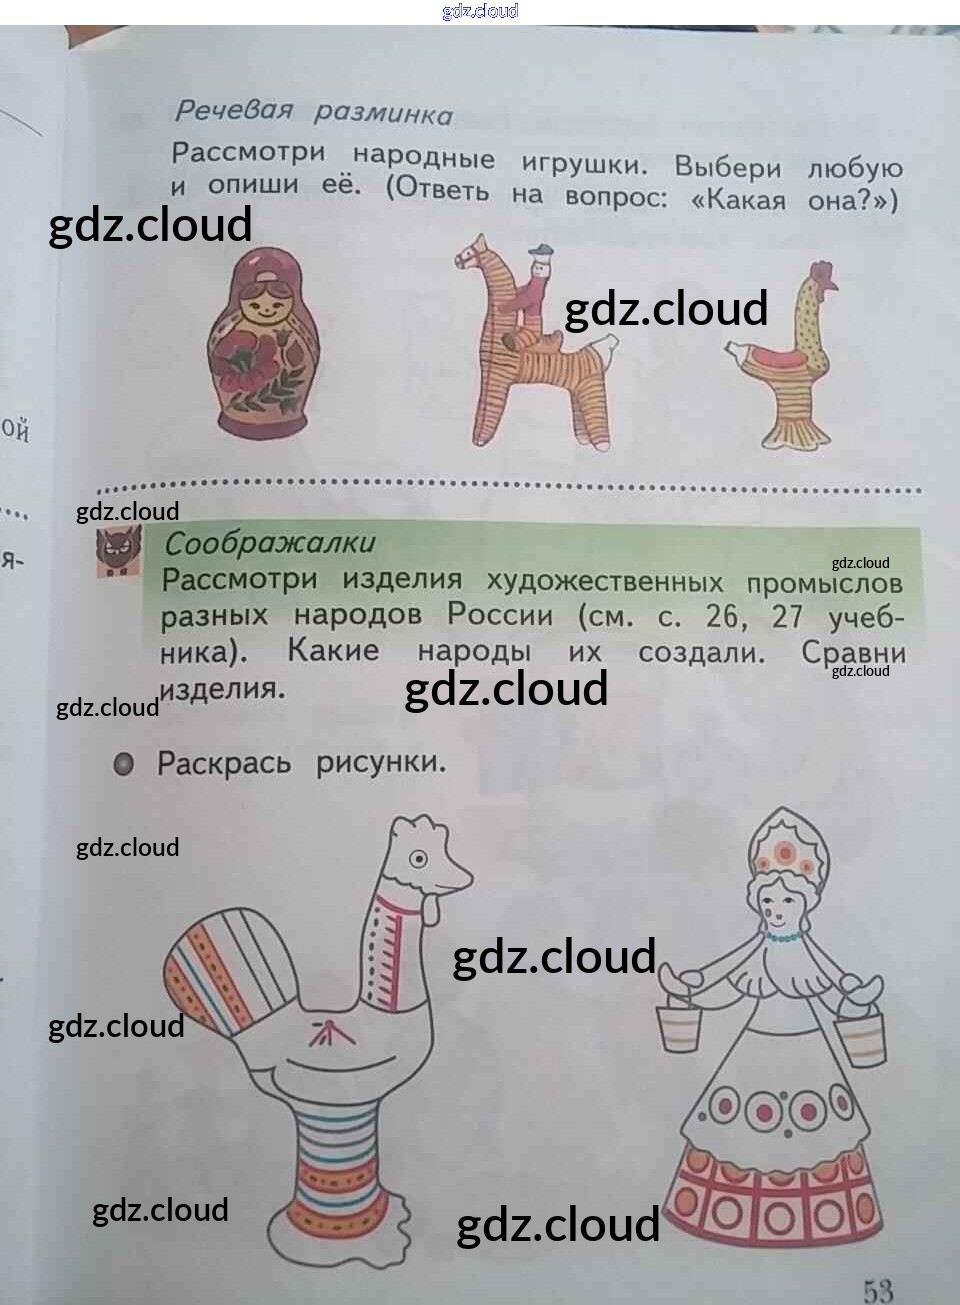 gdz.cloud
Речевая разминка
Рассмотри народные игрушки. Выбери любую
и опиши её. (Ответь на вопрос: «Какая она?»)
gdz.cloud
gdz.cloud
ой
gdz.cloud
я-
Соображалки
gdz.cloud
Рассмотри изделия художественных промыслов
разных народов России (см. с. 26, 27 учеб-
ника). Какие народы их создали. Сравни
gdz.cloud
изделия.
gdz.cloud
gdz.cloud
Раскрась рисунки.
gdz.cloud
gdz.cloud
gdz.cloud
gdz.cloud
gdz.cloud
53